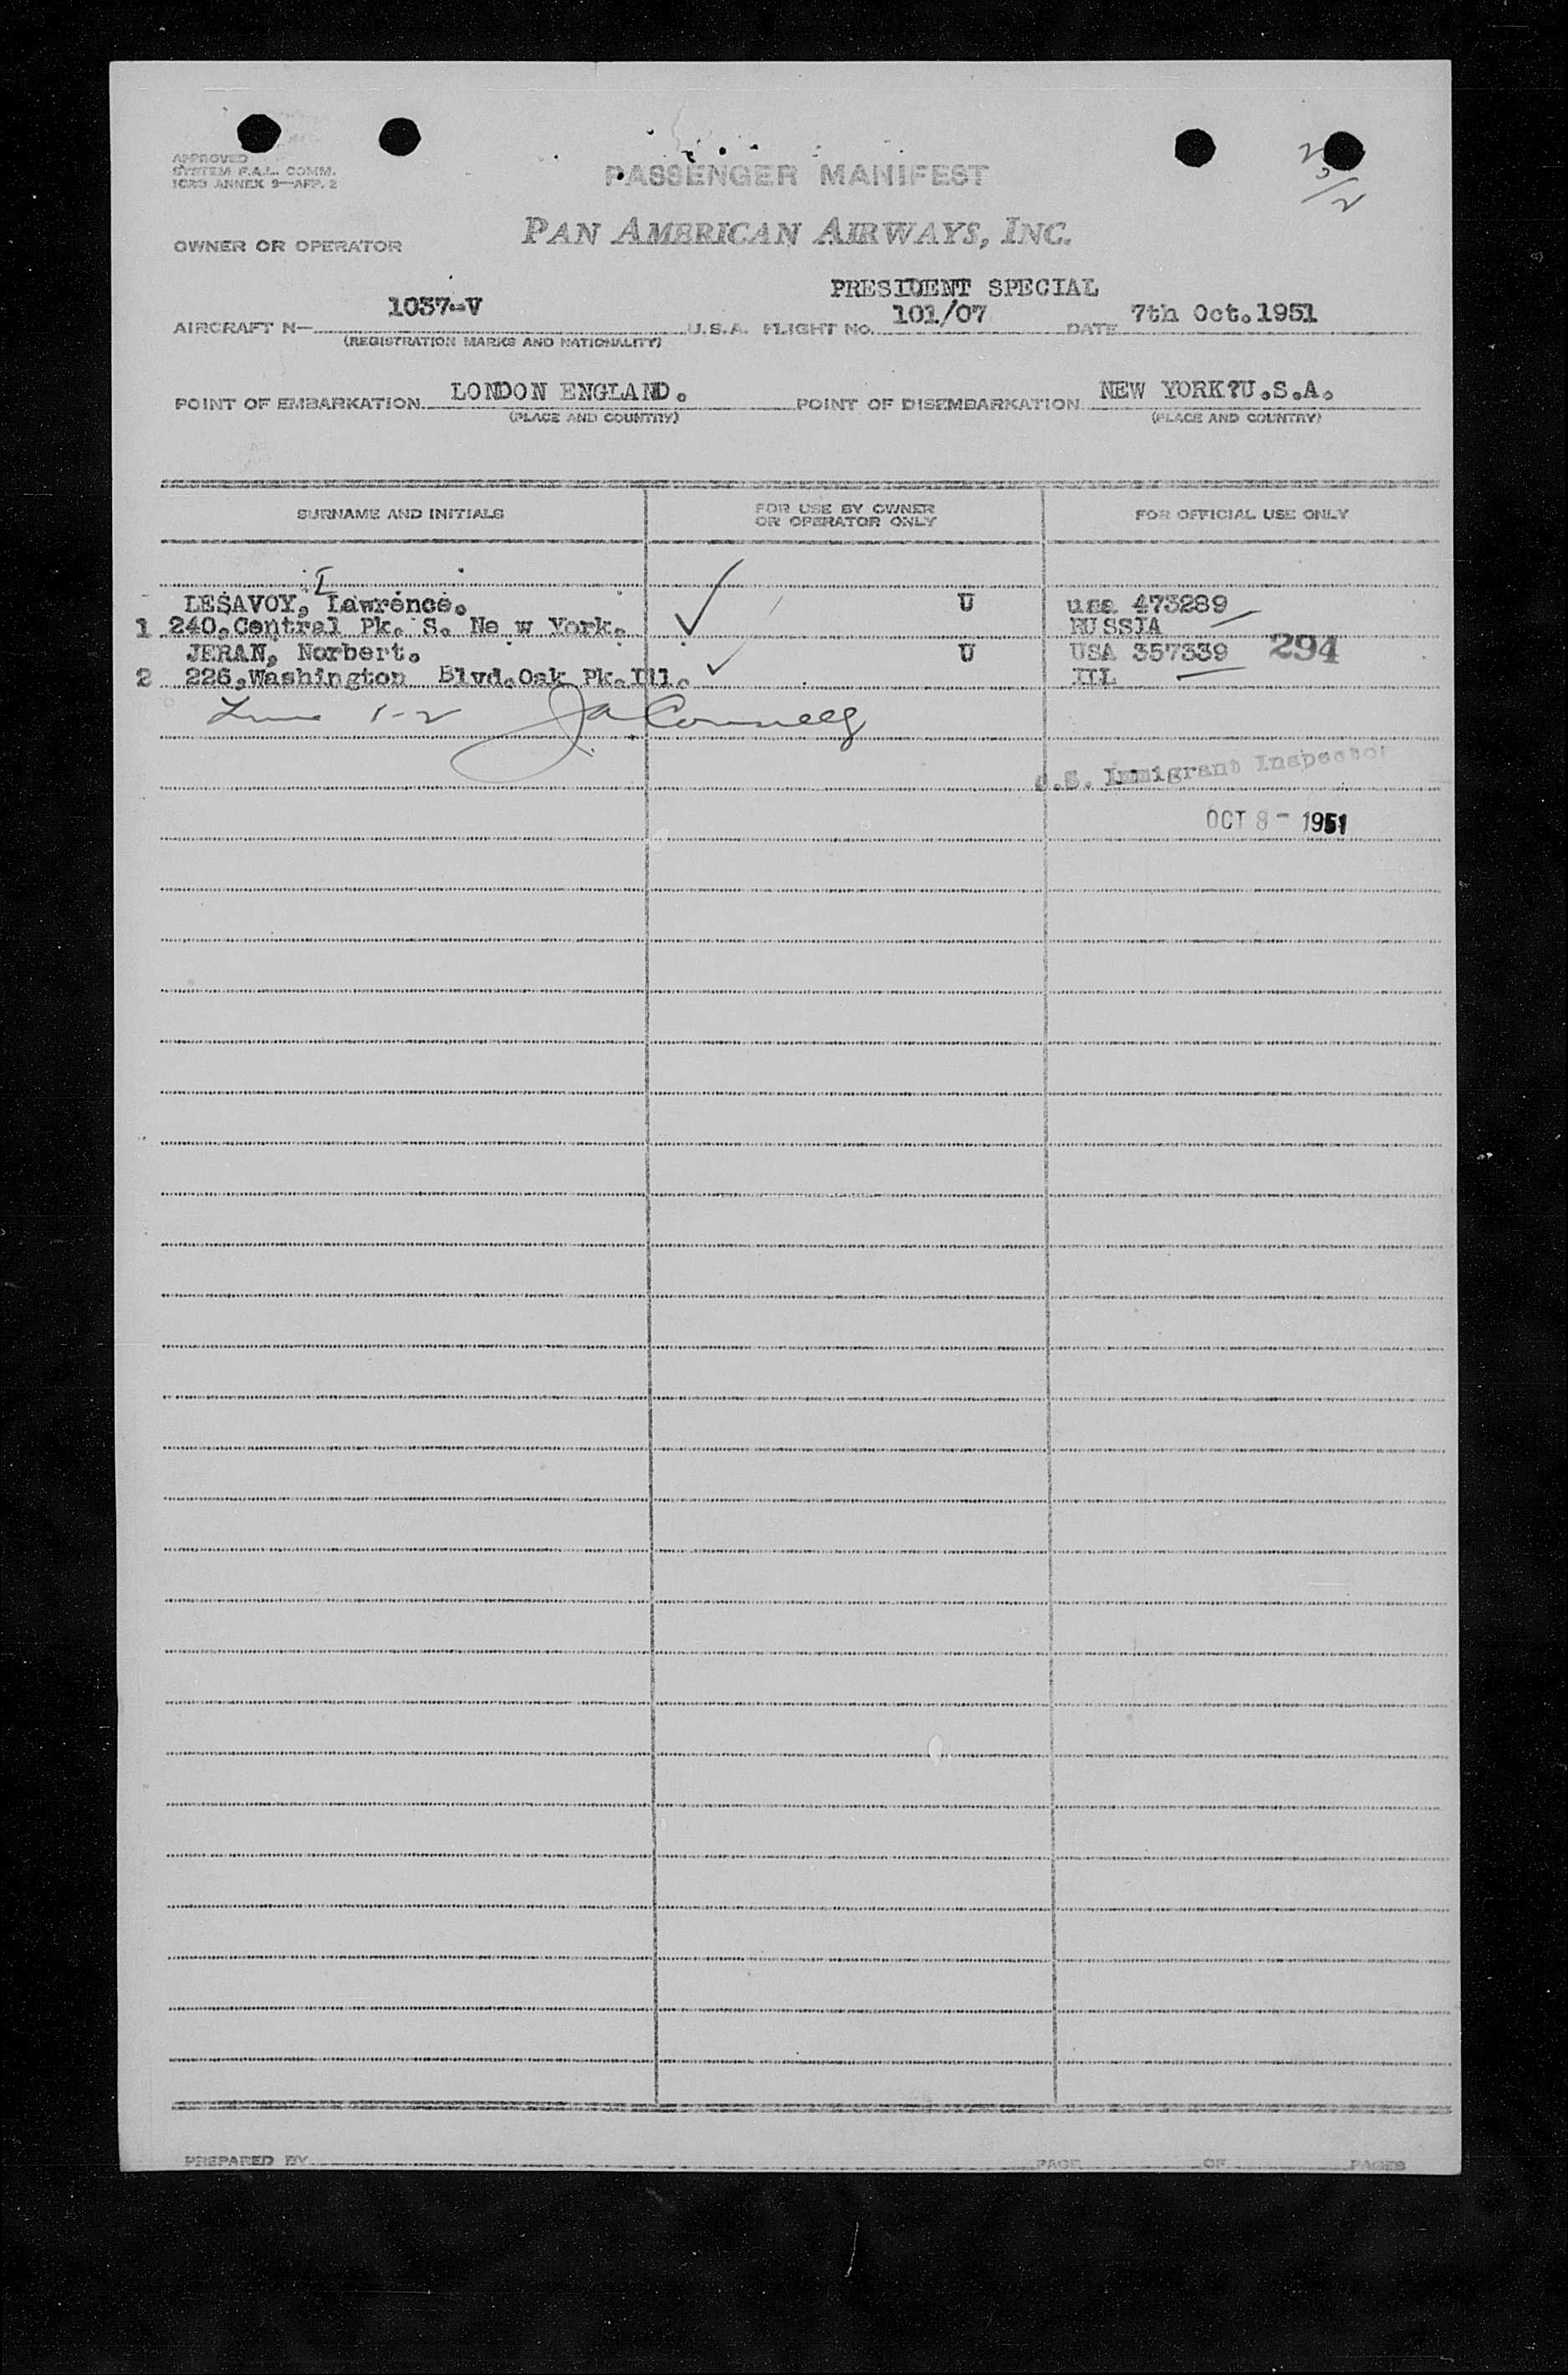 APPROVED
SYSTEM F.A.L. COMM.
ICAO ANNEX 9—APP. 2
PASSENGER MANIFEST
PAN AMERICAN AIRWAYS, INC.
OWNER OR OPERATOR
PRESIDENT SPECIAL
AIRCRAFT N— 1037-V U.S.A. FLIGHT NO. 101/07 DATE 7th Oct.1951
(REGISTRATION MARKS AND NATIONALITY)
POINT OF EMBARKATION LONDON ENGLAND. POINT OF DISEMBARKATION NEW YORK?U.S.A.
(PLACE AND COUNTRY) (PLACE AND COUNTRY)
SURNAME AND INITIALS FOR USE BY OWNER OR OPERATOR ONLY FOR OFFICIAL USE ONLY
I
LESAVOY, Lawrence. U usa 473289
1 240,Central Pk. S. Ne w York. RUSSIA
JERAN, Norbert. U USA 357339 294
2 226,Washington Blvd.Oak Pk.Ill. ILL
1-2
U.S. Immigrant Inspector
OCT 8 - 1951
PREPARED BY PAGE OF PAGES